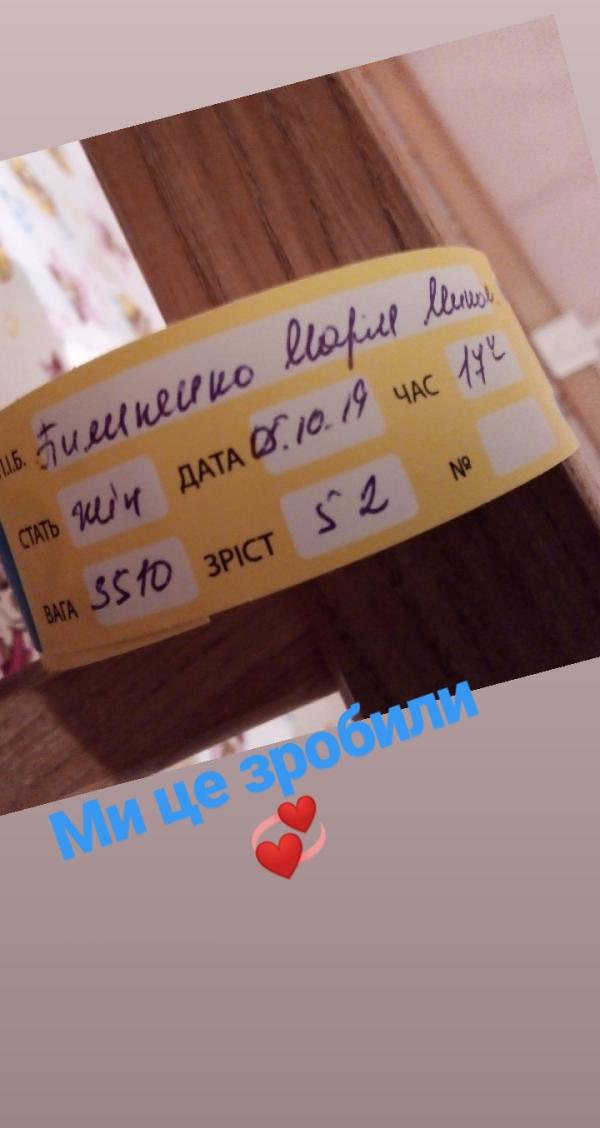 П.І.Б. Пилипенко Марія
СТАТЬ жін ДАТА 05.10.19 ЧАС 17
ВАГА 3510 ЗРІСТ 52 №
Ми це зробили
💞